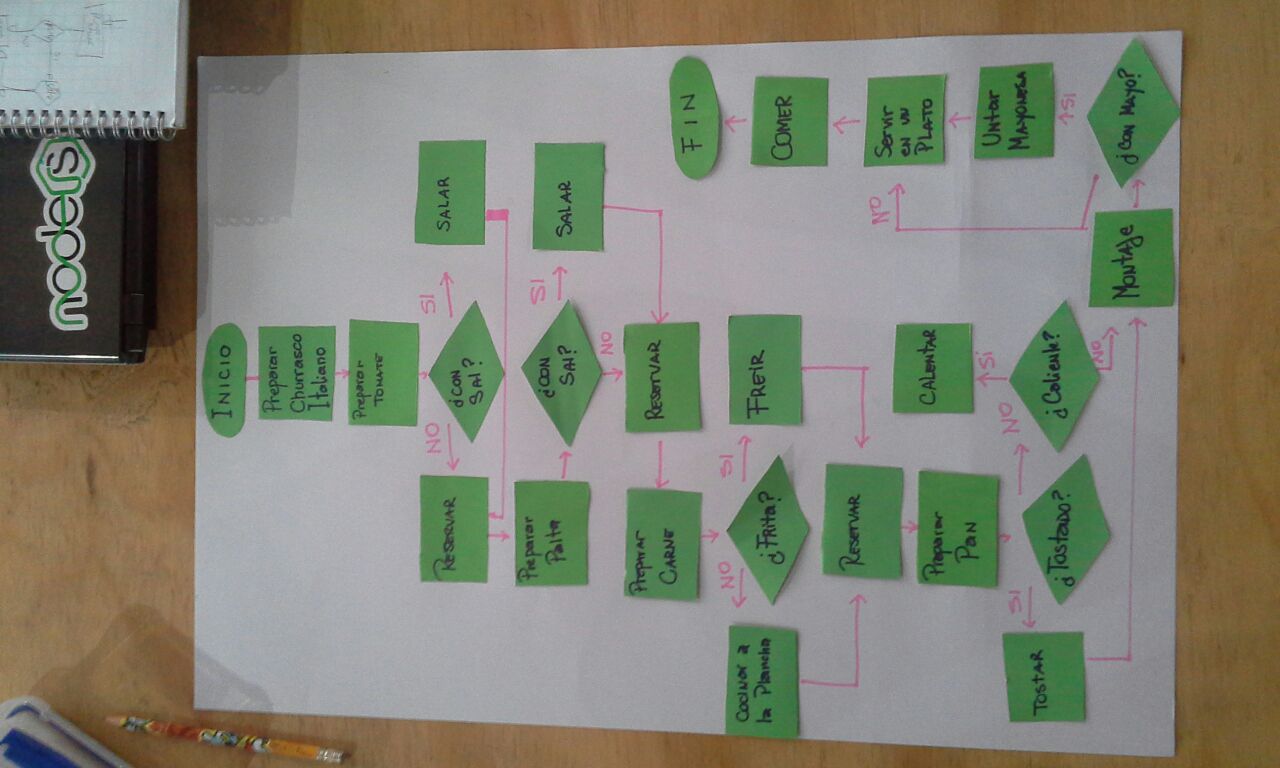 noders
INICIO
Preparar
Churrasco
Italiano
Preparar
TOMATE
¿CON
SAl?
SI
SALAR
NO
RESERVAR
Preparar
Palta
¿CON
SAl?
SI
SALAR
NO
RESERVAR
Preparar
CARNE
¿Frita?
SI
FREIR
NO
Cocinar a
la Plancha
RESERVAR
Preparar
Pan
¿Tostado?
SI
TOSTAR
NO
¿Caliente?
Si
CALENTAR
NO
MONTAJE
¿CON MAYO?
SI
UNTAR
MAYONESA
NO
Servir
en un
PLATO
COMER
FIN